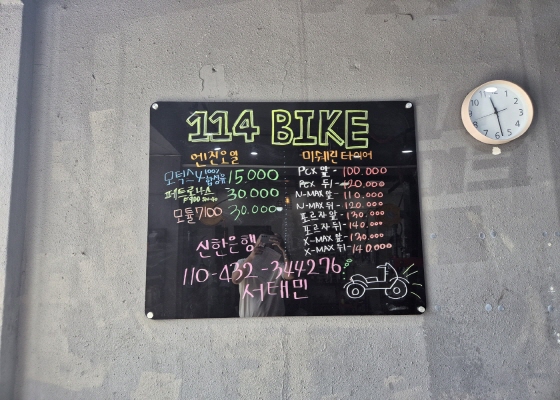 114 BIKE
엔진오일
모턱스 4 100% 합성유 15.000
페트로나스 30.000
모튤7100 30.000
미쉐린 타이어
PCX 앞 - 100.000
PCX 뒤 - 120.000
N-MAX 앞 - 110.000
N-MAX 뒤 - 120.000
포르자 앞 - 130.000
포르자 뒤 - 140.000
X-MAX 앞 - 130.000
X-MAX 뒤 - 140.000
신한은행
110-432-344276
서태민